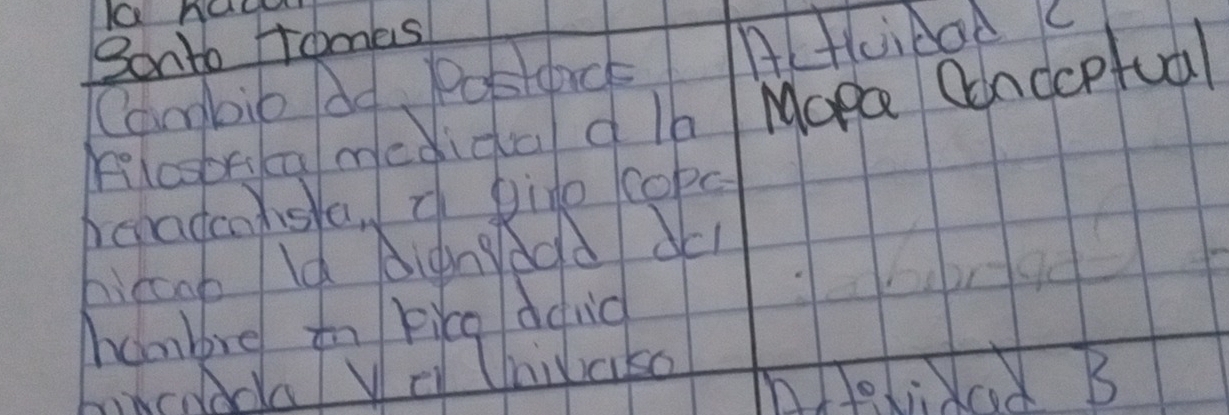 la
Santo Tomas
Cambio de Postura
Filosofica medieval a la
renacentista, el giro cope
nicano la dignidad del
hombre en Pico
y el Universo
Actividad C
Mapa Conceptual
Actividad B